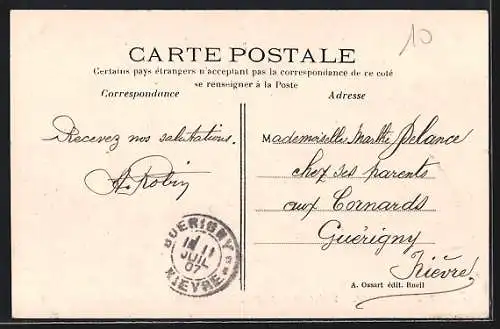 10
CARTE POSTALE
Certains pays étrangers n'acceptant pas la correspondance de ce coté
se renseigner à la Poste
Correspondance
Adresse
Recevez nos salutations.
A. Robin
Mademoiselle Marthe Delance
chez ses parents
aux Cornards
Guérigny
Nièvre
GUERIGNY
11
JUIL
07
NIEVRE
A. Ossart édit. Rueil